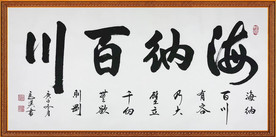 海纳百川
海纳
百川
有容
乃大
壁立
千仞
无欲
则刚